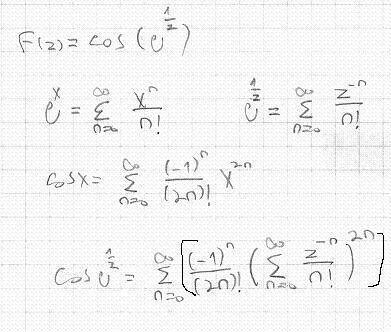 F(z) = cos (e^{1/z})
e^x = ∑_{n=0}^{∞} x^n/n!    e^{1/z} = ∑_{n=0}^{∞} z^{-n}/n!
cos x = ∑_{n=0}^{∞} (-1)^n/(2n)! x^{2n}
cos e^{1/z} = ∑_{n=0}^{∞} [(-1)^n/(2n)! (∑_{n=0}^{∞} z^{-n}/n!)^{2n}]